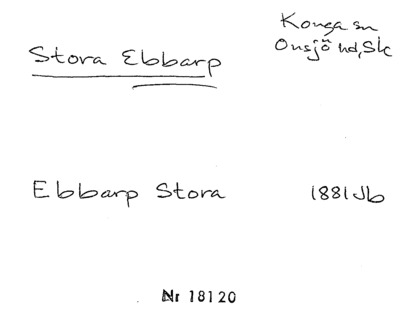 Stora Ebbarp
Konga sn
Onsjö hd, Sk
Ebbarp Stora 1881 Jb
Nr 18120